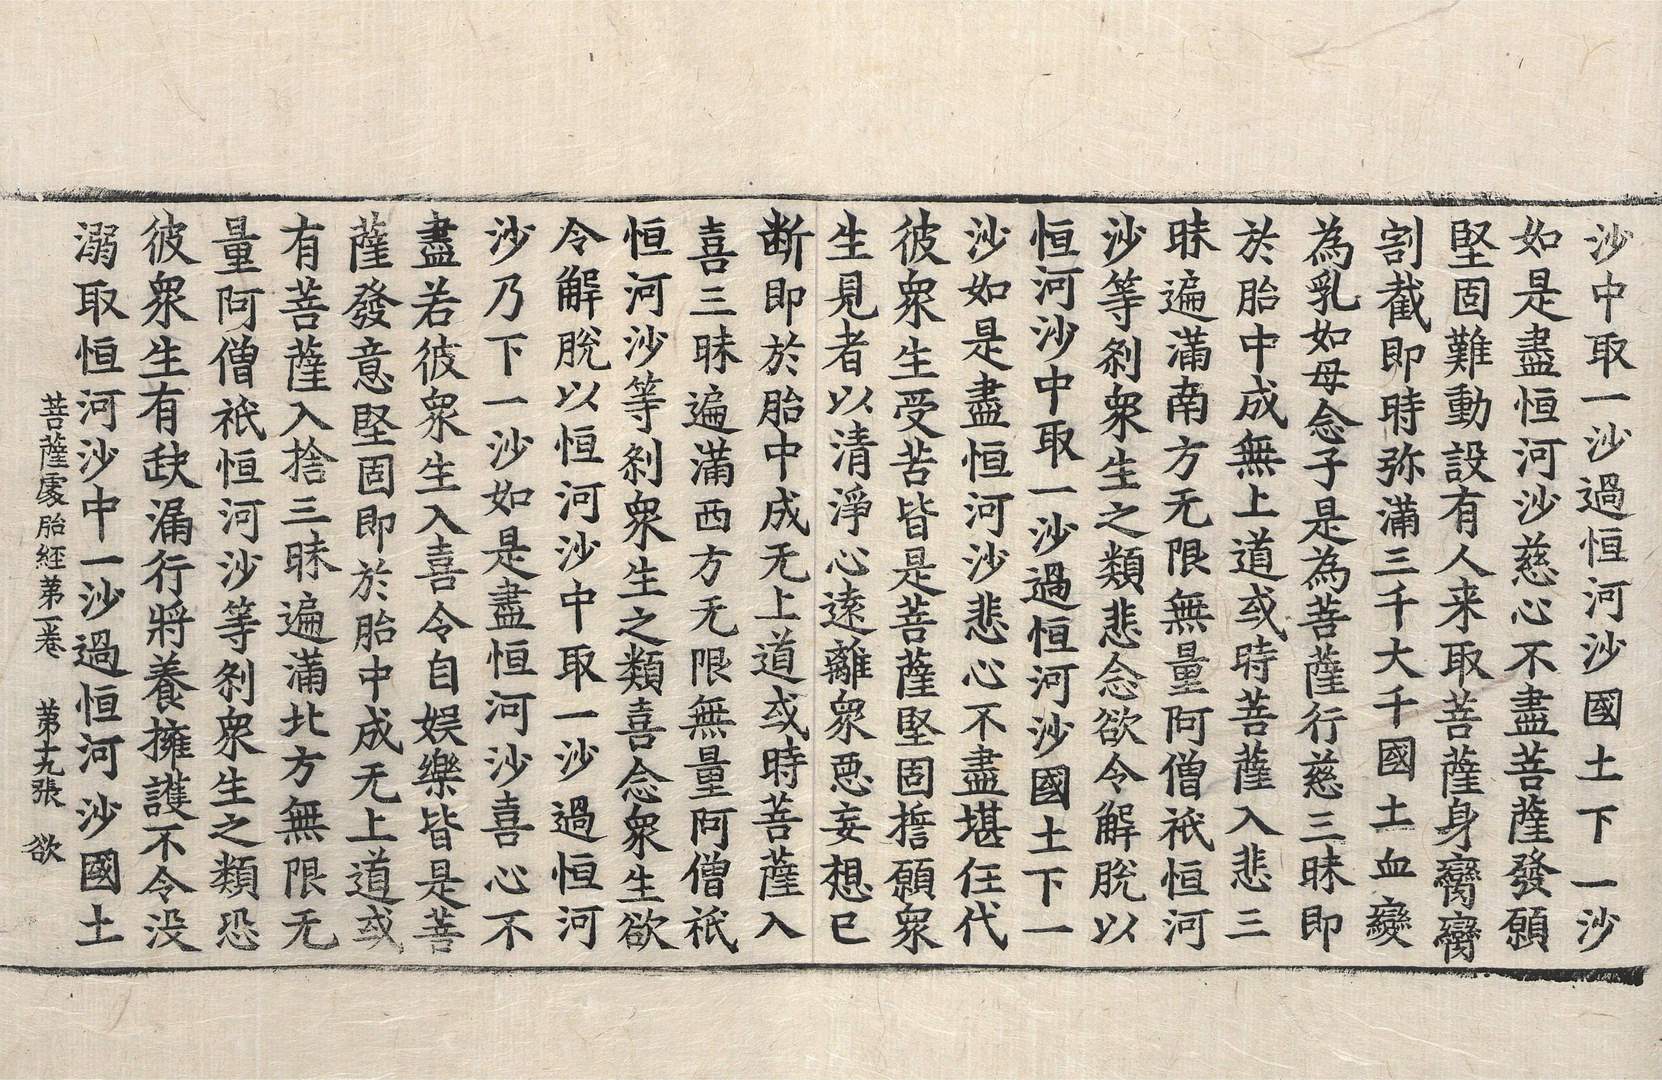 沙中取一沙過恒河沙國土下一沙
如是盡恒河沙慈心不盡菩薩發願
堅固難動設有人来取菩薩身臠臠
割截即時弥滿三千大千國土血變
為乳如母念子是為菩薩行慈三昧即
於胎中成無上道或時菩薩入悲三
昧遍滿南方无限無量阿僧祇恒河
沙等剎衆生之類悲念欲令解脫以
恒河沙中取一沙過恒河沙國土下一
沙如是盡恒河沙悲心不盡堪任代
彼衆生受苦皆是菩薩堅固擔願衆
生見者以清淨心遠離衆惡妄想已
断即於胎中成无上道或時菩薩入
喜三昧遍滿西方无限無量阿僧祇
恒河沙等剎衆生之類喜念衆生欲
令解脫以恒河沙中取一沙過恒河
沙乃下一沙如是盡恒河沙喜心不
盡若彼衆生入喜令自娱樂皆是菩
薩發意堅固即於胎中成无上道或
有菩薩入捨三昧遍滿北方無限无
量阿僧祇恒河沙等剎衆生之類恐
彼衆生有缺漏行將養擁護不令没
溺取恒河沙中一沙過恒河沙國土
菩薩處胎經第一卷 第十九張 欲